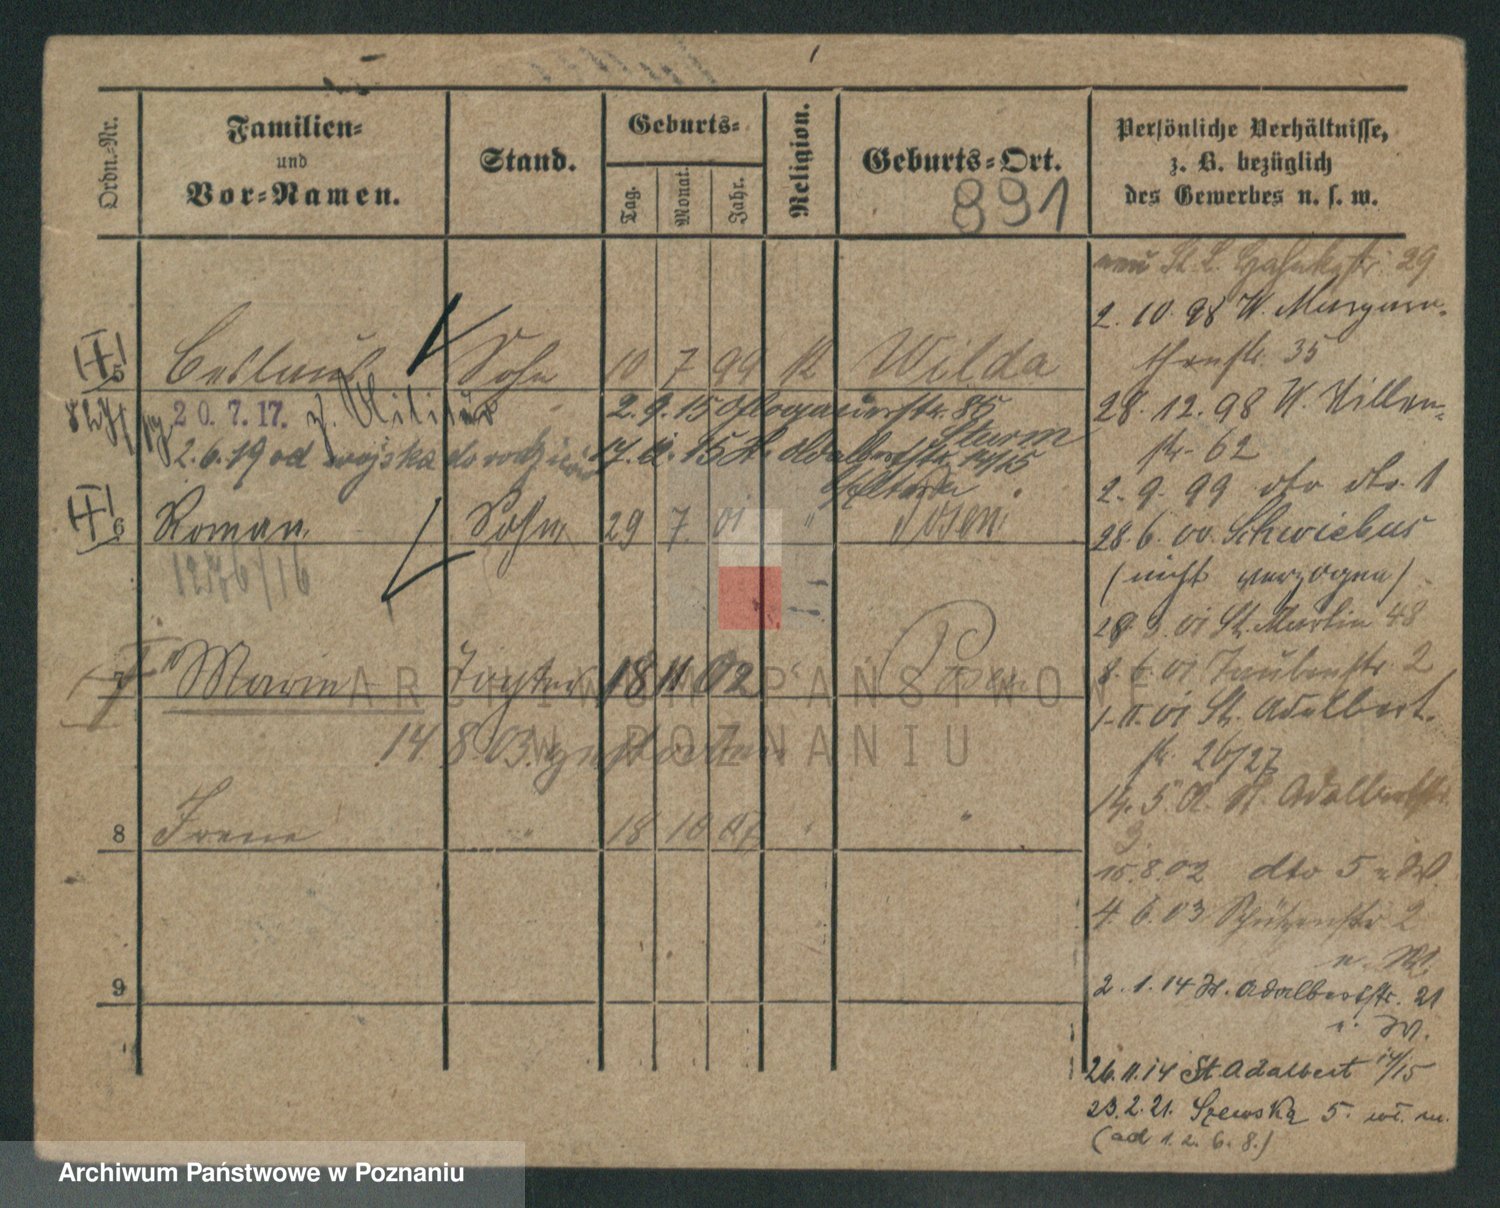 Ordn.-Nr.
Familien-
und
Vor-Namen.
Stand.
Geburts-
Tag.
Monat.
Jahr.
Religion.
Geburts-Ort.
891
Persönliche Verhältnisse,
z. B. bezüglich
des Gewerbes u. s. w.
5 Ceslaus Sohn 10 7 99 K Wilda
20.7.17. z. Militär
2.9.15 Glogauerstr. 85
2.6.19 od wojska do rodziców
17. 15 St. Adalbertstr. 14/15
Sturm
6 Roman Sohn 29 7. 01 " Posen
1276/16
7 Marie Tochter 18 11 02 Posen
14 8 03. gestorben
8 Irene " 18 10 07 " "
9
29
2. 10. 98 W. Margare-
thenstr. 35
28. 12. 98 W.
str. 62
2. 9. 99 dto dto. 1
28. 6. 00. Schwiebus
(nicht verzogen)
28. 3. 01 St. Martin 48
8. 6. 01 Taubenstr. 2
1. 11. 01 St. Adalbert-
str. 26/27
14. 5. 02. St. Adalbertstr.
3
15. 8. 02 dto 5 u. W.
4. 6. 03 Schützenstr 2
u. W.
2. 1. 14 St. Adalbertstr. 21
u. W.
26. 11. 14 St Adalbert 14/15
23. 2. 21. Szewska 5. wł. m.
(ad 1. 2. 6. 8.)
ARCHIWUM PAŃSTWOWE
W POZNANIU
Archiwum Państwowe w Poznaniu